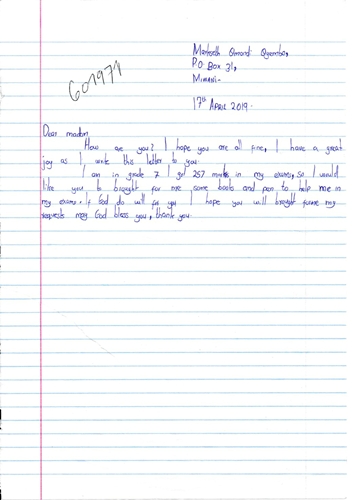 Ormond
P.O Box 31,
MIWANI.
17th APRIL 2019.
601971
Dear madam
How are you? I hope you are all fine, I have a great
joy as I write this letter to you.
I am in grade 7 I got 257 marks in my exams, so I would
like you to brought for me some books and pen to help me in
my exams. If God do will for you I hope you will brought forme my
requests may God bless you, thank you.